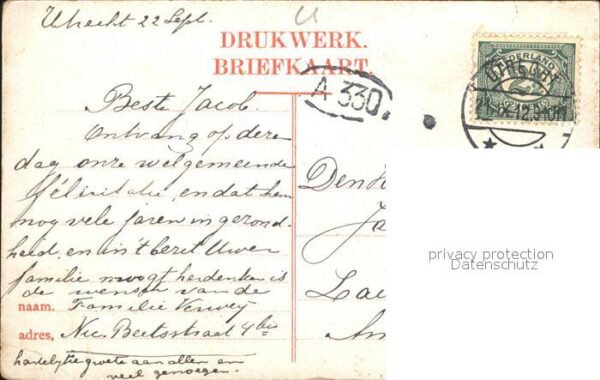 Utrecht 22 Sept.
DRUKWERK.
BRIEFKAART.
A 330.
NEDERLAND
Beste Jacob.
Ontvang op deze
dag onze welgemeende
felicitatie, en dat
nog vele jaren in gezond-
heid, en in 't Uwer
familie moogt herdenken is
de wensch van de
naam. Familie Verwey
adres, Nic. Beetsstraat 4 bis
hartelijke groete aan allen en
veel genoegen.
Den
Ja
La
Am
privacy protection
Datenschutz